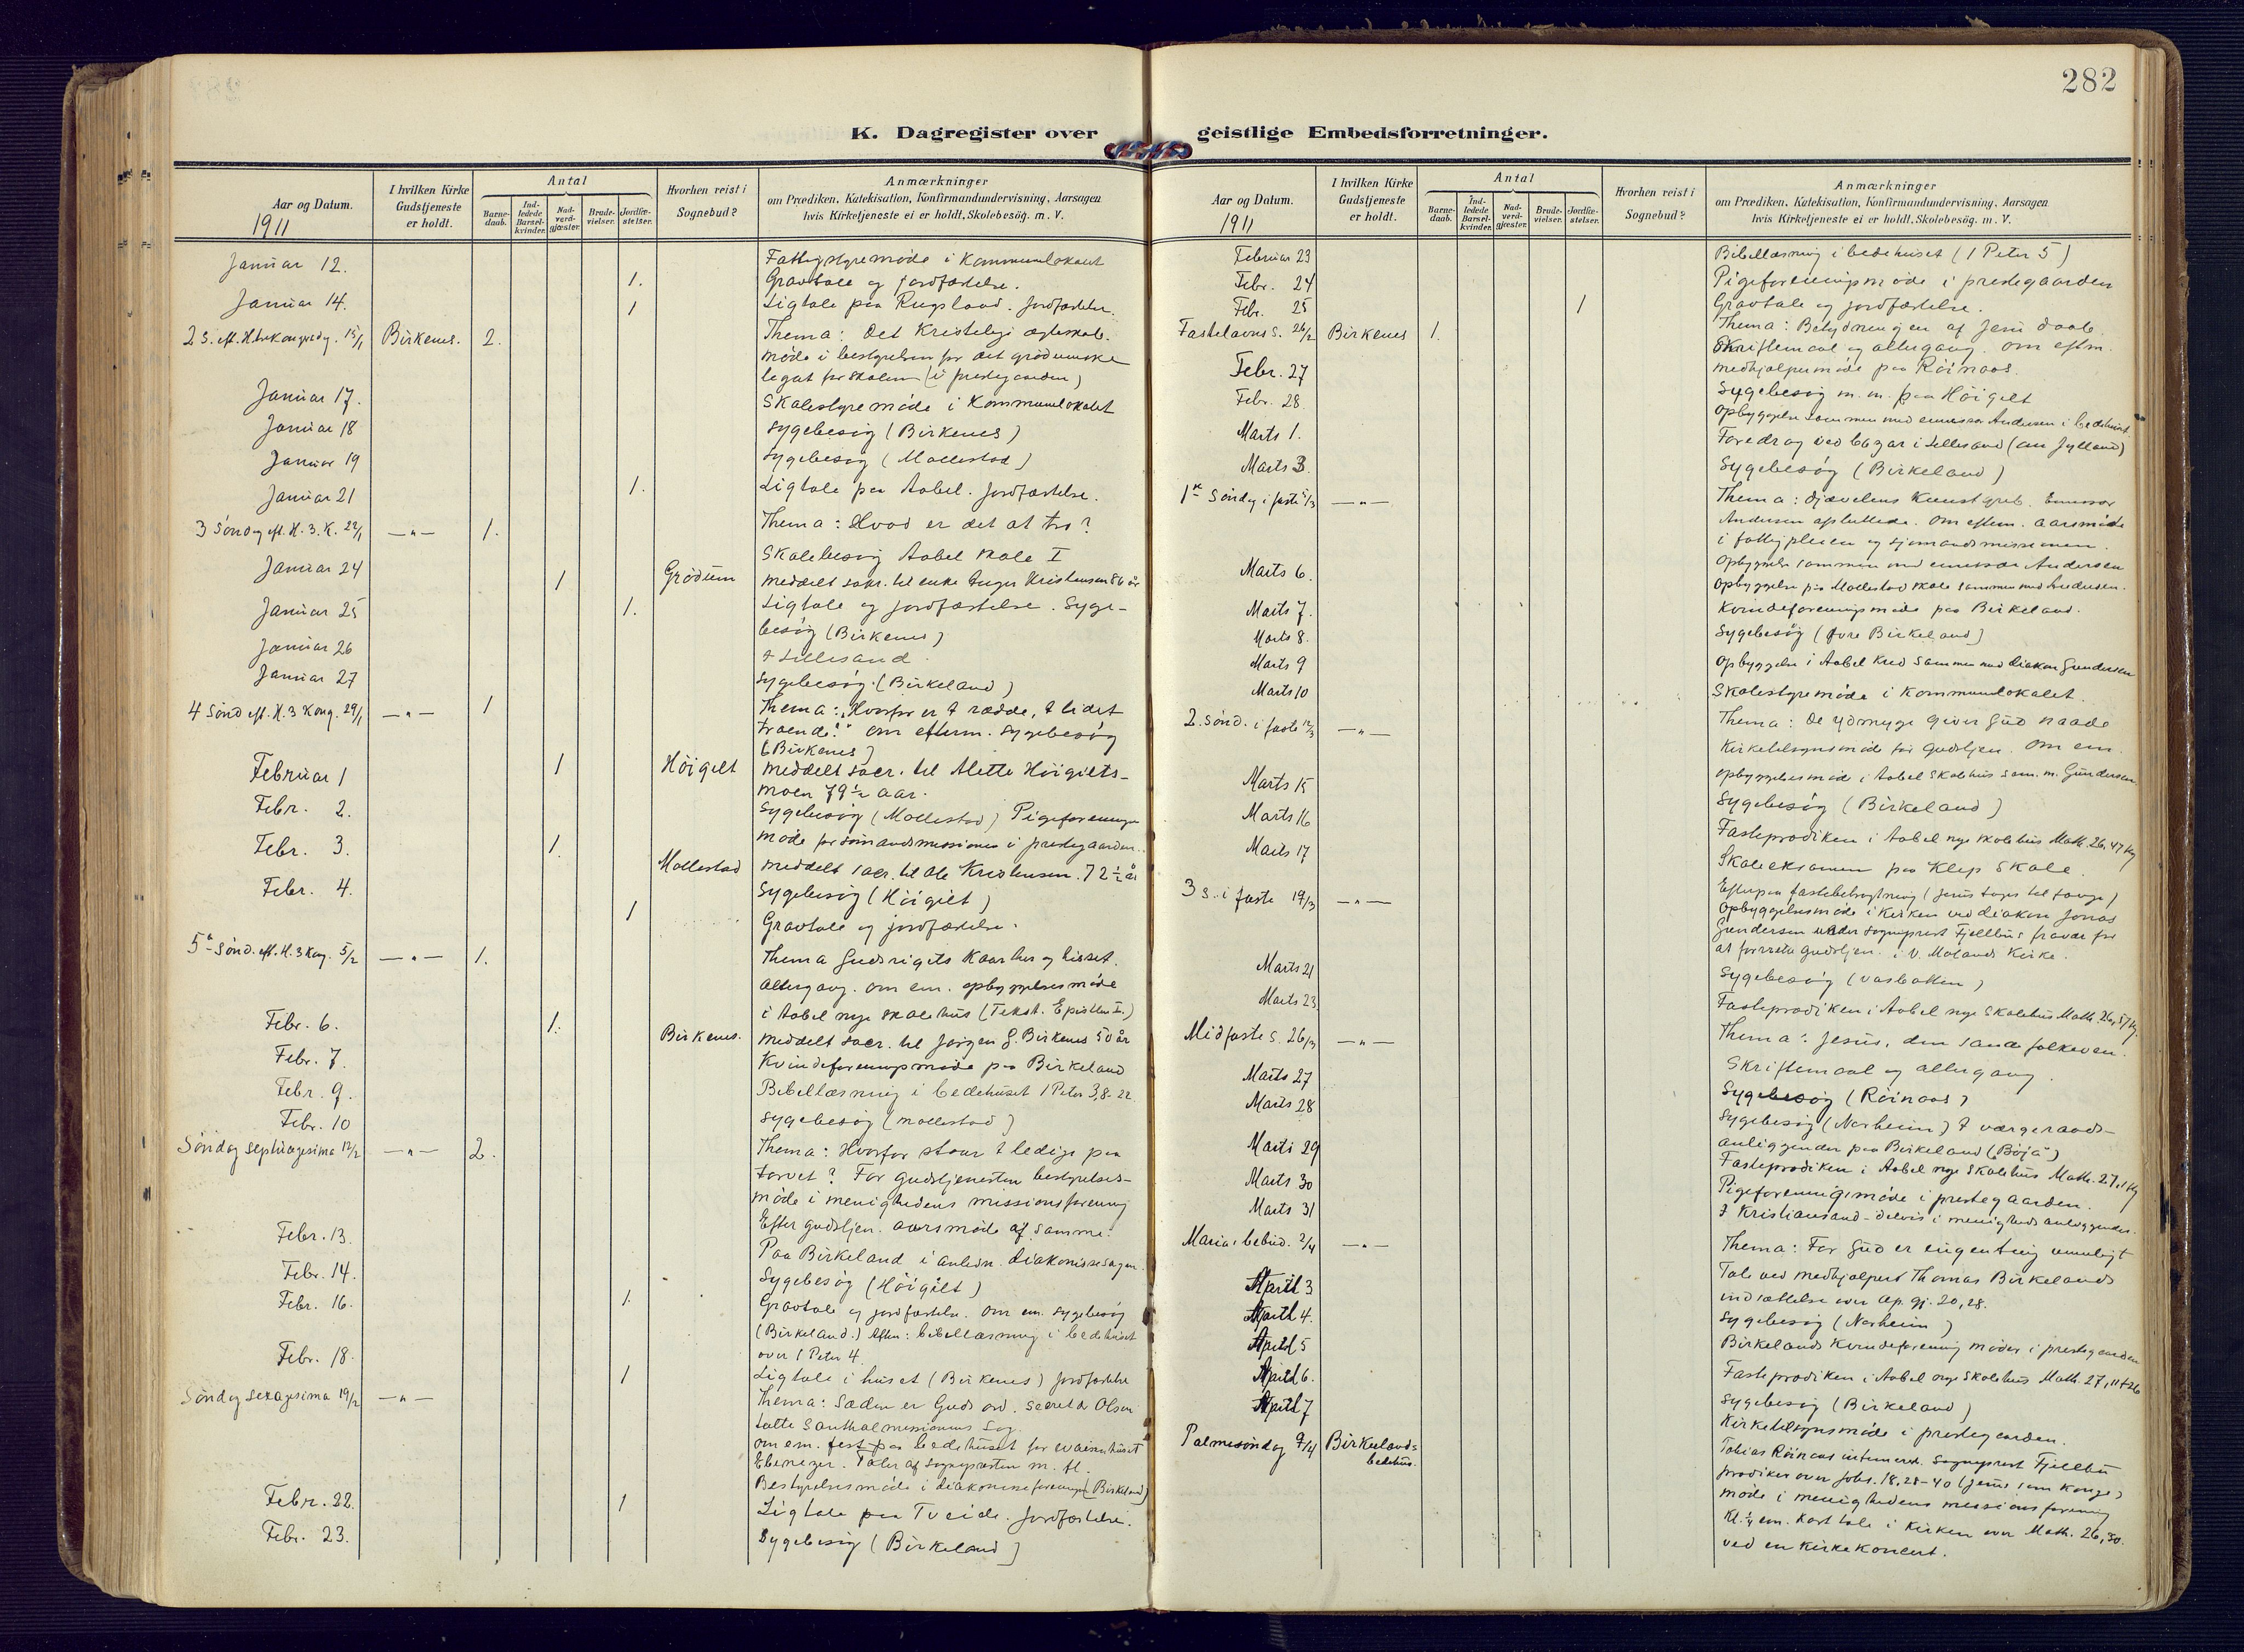 282
K. Dagregister over geistlige Embedsforretninger.
Aar og Datum.
1911
I hvilken Kirke Gudstjeneste er holdt.
Antal
Barne-daab.
Ind-ledede Barsel-kvinder.
Nad-verd-gjæster.
Brude-vielser.
Jordfæ-stelser.
Hvorhen reist i Sognebud?
Anmærkninger
om Prædiken, Katekisation, Konfirmandundervisning, Aarsagen
hvis Kirketjeneste ei er holdt, Skolebesög. m. V.
Januar 12. Fattigstyremöde i Kommunelokalet
1. Gravtale og jordfæstelse.
Januar 14. 1 Ligtale paa Rugsland. Jordfæstelse.
2 S. eft. H. trekongersdg. 15/1 Birkenes. 2. Thema: Det Kristelige ægteskab.
möde i bestyrelsen for det grödumske
legat for skolen (i prestegaarden)
Januar 17. Skolestyremöde i Kommunelokalet
Januar 18 Sygebesög (Birkenes)
Januar 19 Sygebesög (Mollestad)
Januar 21 1. Ligtale paa Aabel. Jordfæstelse.
3 Söndag eft. H. 3. K. 22/1 —"— 1. Thema: Hvad er det at tro?
Januar 24 Skolebesög Aabel skole I
1 Grödum meddelt sakr. til enke Inger Kristensen 86 år
Januar 25 1. Ligtale og jordfæstelse. Syge-
besög (Birkenes)
Januar 26 I Lillesand.
Januar 27 Sygebesög. (Birkeland)
4 Sönd eft. H. 3 Kong. 29/1 —"— 1 Thema: "Hvorfor er I rædde, I lidet
troende!" Om efterm. Sygebesög
(Birkenes)
Februar 1 1 Höigelt meddelt sacr. til Alette Höigilts-
moen 79 1/2 aar.
Febr. 2. Sygebesög (Mollestad) Pigeforenings
möde for sömandsmissionen i prestegaarden.
Febr. 3. 1. Mollestad meddelt sacr. til Ole Kristensen. 72 1/2 år
Febr. 4. Sygebesög (Höigilt)
1 Gravtale og jordfæstelse.
5te Sönd. eft. H. 3 Kong. 5/2 —"— 1. Thema Gudsrigets Kaar her og hisset.
Altergang. Om em. opbyggelsesmöde
i Aabel nye skolehus (Tekst. Epistlen I.)
Febr. 6. 1. Birkenes. meddelt sacr. til Jörgen G. Birkenes 50 år
Febr. 7. Kvindeforeningsmöde paa Birkeland
Febr. 9. Bibellæsning i bedehuset 1 Peter 3,8-22.
Febr. 10 Sygebesög (Mollestad)
Söndag septuagesima 12/2 —"— 2. Thema: Hvorfor staar I ledige paa
torvet? Før gudstjenesten bestyrelses-
möde i menighedens missionsforening
Efter gudstjen. aarsmöde af samme.
Febr. 13. Paa Birkeland i anledn. diakonissesagen.
Febr. 14. Sygebesög (Höigilt)
Febr. 16. 1. Gravtale og jordfæstelse. Om em. sygebesög
(Birkeland.) Aften: bibellæsning i bedehuset
over 1 Peter 4.
Febr. 18. 1 Ligtale i huset (Birkenes) Jordfæstelse
Söndag sexagesima 19/2 —"— Thema: Sæden er Guds ord. Sekretær Olsen
talte Santhalmissionens Sag.
Om em. fest paa bedehuset for waisenhuset
Ebenezer. Taler af sognepræsten m. fl.
Febr. 22. Bestyrelsesmöde i diakonisseforeningen (Birkeland)
1 Ligtale paa Tveide. Jordfæstelse.
Febr. 23. Sygebesög (Birkeland)
Aar og Datum.
1911
I hvilken Kirke Gudstjeneste er holdt.
Antal
Barne-daab.
Ind-ledede Barsel-kvinder.
Nad-verd-gjæster.
Brude-vielser.
Jordfæ-stelser.
Hvorhen reist i Sognebud?
Anmærkninger
om Prædiken, Katekisation, Konfirmandundervisning, Aarsagen
hvis Kirketjeneste ei er holdt, Skolebesög. m. V.
Februar 23 Bibellæsning i bedehuset (1 Peter 5)
Febr. 24 Pigeforeningsmöde i prestegaarden
Febr. 25 1 Gravtale og jordfæstelse.
Fastelavns S. 26/2 Birkenes 1. Thema: Betydningen af Jesu daab
Skriftemaal og altergang. Om eftm.
medhjælpermöde paa Röinaas.
Febr. 27 Sygebesög m. m. paa Höigilt
Febr. 28. Opbyggelse sammen med emissær Andersen i bedehuset.
Marts 1. Foredrag ved bazar i Lillesand (om Jylland)
Marts 3. Sygebesög (Birkeland)
1ste Söndag i faste 5/3 —"— Thema: Djævelens Kunstgreb. Emissær
Andersen afsluttede. Om eftem. aarsmöde
i fattigpleien og sjömandsmissionen.
Marts 6. Opbyggelse sammen med emissær Andersen
Opbyggelse paa Mollestad skole sammen med Andersen.
Marts 7. Kvindeforeningsmöde paa Birkeland.
Marts 8. Sygebesög (Övre Birkeland)
Marts 9 Opbyggelse i Aabel Kred sammen med diakon Gundersen
Marts 10 Skolestyremöde i Kommunelokalet.
2. Sönd. i faste 12/3 —"— Thema: De ydmyge giver Gud naade
Kirketilsynsmöde før gudstjen. Om em.
opbyggelsesmöde i Aabel skolehus sam. m. Gundersen.
Marts 15 Sygebesög (Birkeland)
Marts 16 Fasteprædiken i Aabel nye skolehus Math. 26, 47 flg
Marts 17 Skoleeksamen paa Klep Skole.
3 S. i faste 19/3 —"— Efterpaa fastebetragtning (Jesus tages til fange)
Opbyggelsesmöde i Kirken ved diakon Jonas
Gundersen under sogneprest Fjellbus fravær for
at forrette gudstjen. i V. Molands Kirke.
Marts 21 Sygebesög (Vasbotten)
Marts 23 Fasteprædiken i Aabel nye Skolehus Math. 26, 57 flg.
Midfaste S. 26/3 —"— Thema: Jesus, den sande folkeven.
Skriftemaal og altergang.
Marts 27 Sygebesög (Röinaas)
Marts 28 Sygebesög (Norheim) I værgeraads-
anliggender paa Birkeland (Böjå)
Marts 29
Marts 30 Fasteprædiken i Aabel nye Skolehus Math. 27,1 flg
Marts 31 Pigeforeningsmöde i prestegaarden.
I Kristiansand - delvis i menigheds anliggender.
Mariæ bebud. 2/4 —"— Thema: For Gud er ingenting umuligt
Tale ved medhjælpert Thomas Birkelands
indsættelse over Ap. gj. 20, 28.
April 3 Sygebesög (Norheim)
April 4. Birkelands Kvindeforening möder i prestegaarden
April 5
April 6. Fasteprædiken i Aabel nye Skolehus Math. 27, 11-26
April 7 Sygebesög (Birkeland)
Kirketilsynsmöde i prestegaarden.
Palmesöndag 9/4 Birkelands bedehus. Tobias Röinaas intimered. Sogneprest Fjellbu
prædiker over Johs. 18, 28-40 (Jesus som Konge)
Möde i menighedens missionsforening
Kl. em. Kort tale i Kirken over Math. 26, 30.
ved en Kirkekoncert.